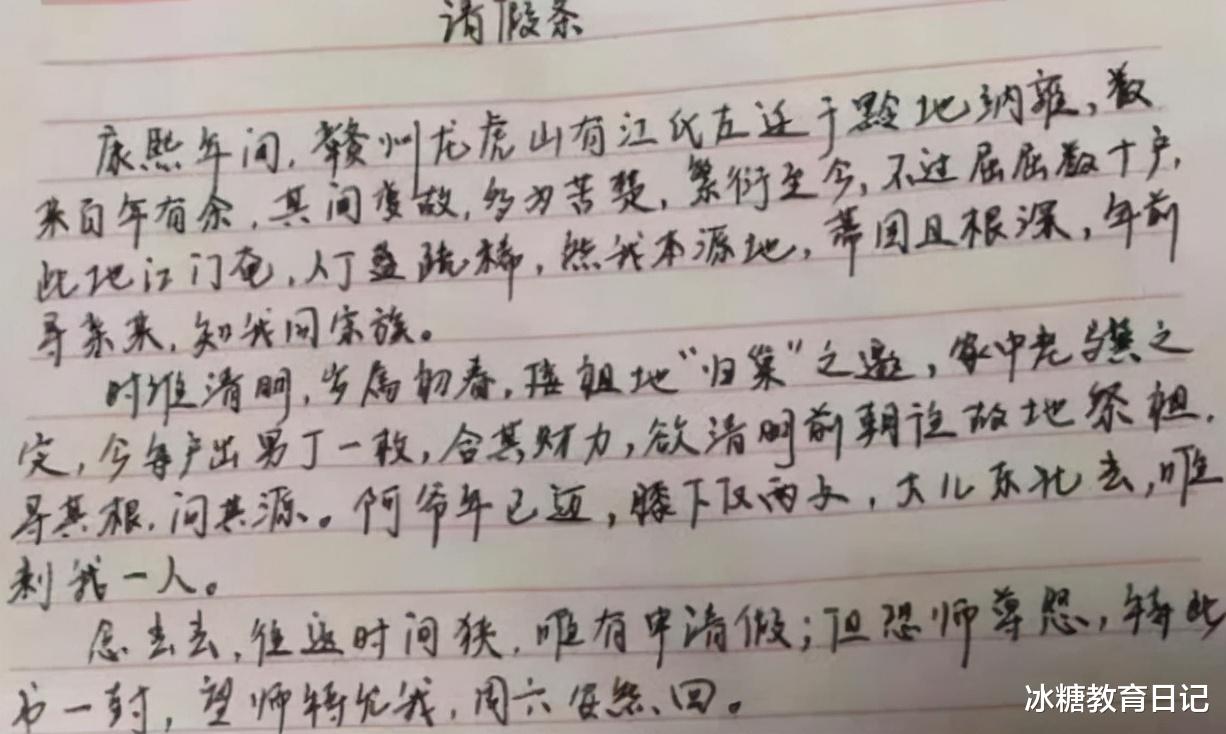 请假条
康熙年间,赣州龙虎山有江氏左迁于黔地纳雍,数
来百年有余,其间变故,多为苦楚,繁衍至今,不过屈屈数十户,
此地江门奄,人丁盈疏稀,然我本源地,蒂固且根深,年前
寻亲来,知我同宗族。
时维清明,岁属初春,接祖地“归巢”之邀,家中老与冀之
定,今每户出男丁一枚,合其财力,欲清明前朝往故地祭祖,
寻其根,问其源。阿爷年已迈,膝下仅两女,大儿东北去,唯
剩我一人。
念去去,往返时间狭,唯有申请假;但恐师尊怒,特此
书一封,望师特允我,周六安然回。
冰糖教育日记